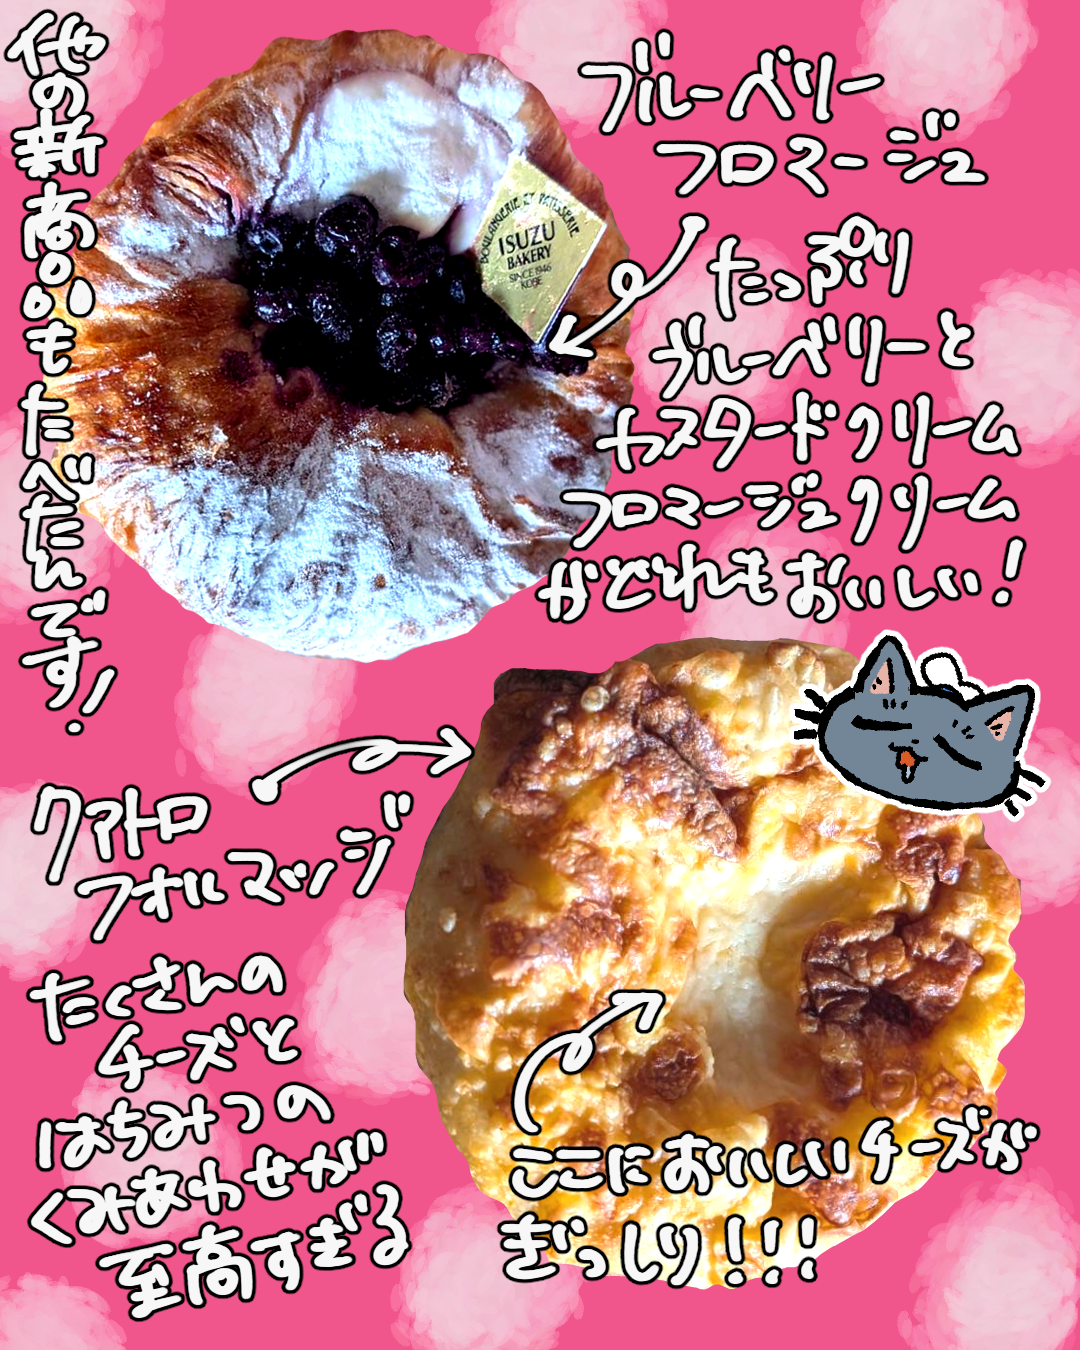 他の新商品もたべたんです!
ブルーベリー
フロマージュ
BOULANGERIE ET PATISSERIE
ISUZU
BAKERY
SINCE 1946
KOBE
たっぷり
ブルーベリーと
カスタードクリーム
フロマージュクリーム
がどれもおいしい!
クアトロ
フォルマッジ
たくさんの
チーズと
はちみつの
くみあわせが
至高すぎる
ここにおいしいチーズが
ぎっしり!!!